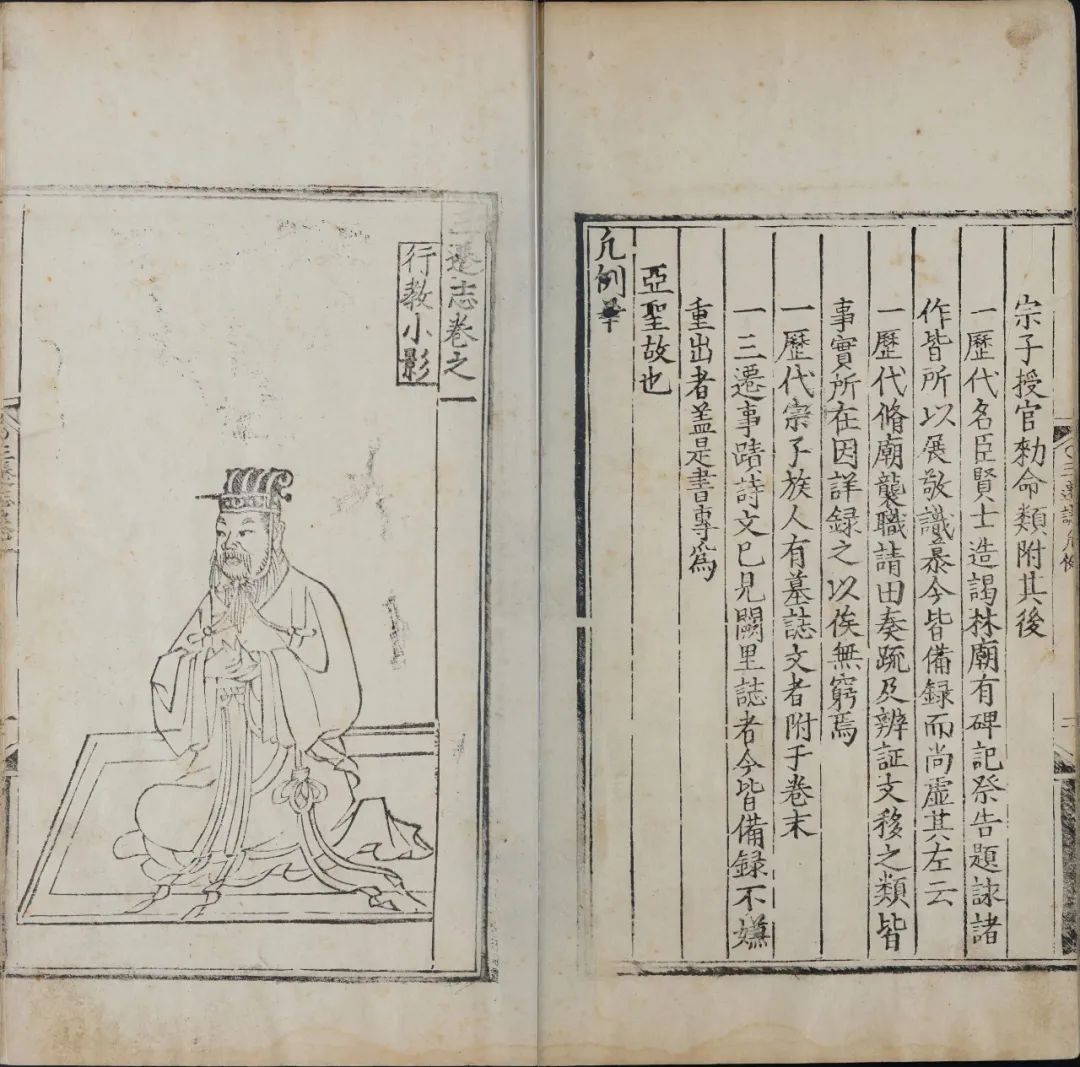 宗子授官勑命類附其後
一歷代名臣賢士造謁林廟有碑記祭告題詠諸
作皆所以展敬識慕今皆備録而尚虛其左云
一歷代脩廟襲職請田奏疏及辨証文移之類皆
事實所在因詳録之以俟無窮焉
一歷代宗子族人有墓誌文者附于卷末
一三遷事蹟詩文已見闕里誌者今皆備録不嫌
重出者盖是書專爲
亞聖故也
凡例畢
三遷志卷之一
行教小影